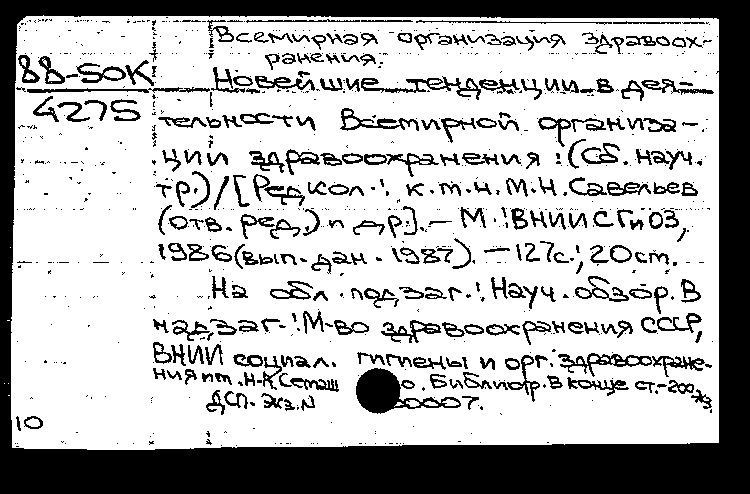 Всемирная организация здравоох-
ранения.
88-5OK
4275
Новейшие тенденции в дея-
тельности Всемирной организа-
ции здравоохранения : (Сб. науч.
тр.) / [Редкол.: к.м.н. М.Н. Савельев
(отв. ред.) и др.]. – М.: ВНИИСГиОЗ,
1986 (вып. дан. 1987). – 127с.; 20 cm.
На обл. подзаг.: Науч. обзор. В
надзаг.: М-во здравоохранения СССР,
ВНИИ социал. гигиены и орг. здравоохране-
ния им. Н.А. Семаш о. Библиогр. в конце ст. - 200 экз.
ДСП. Экз. N 00007.
10